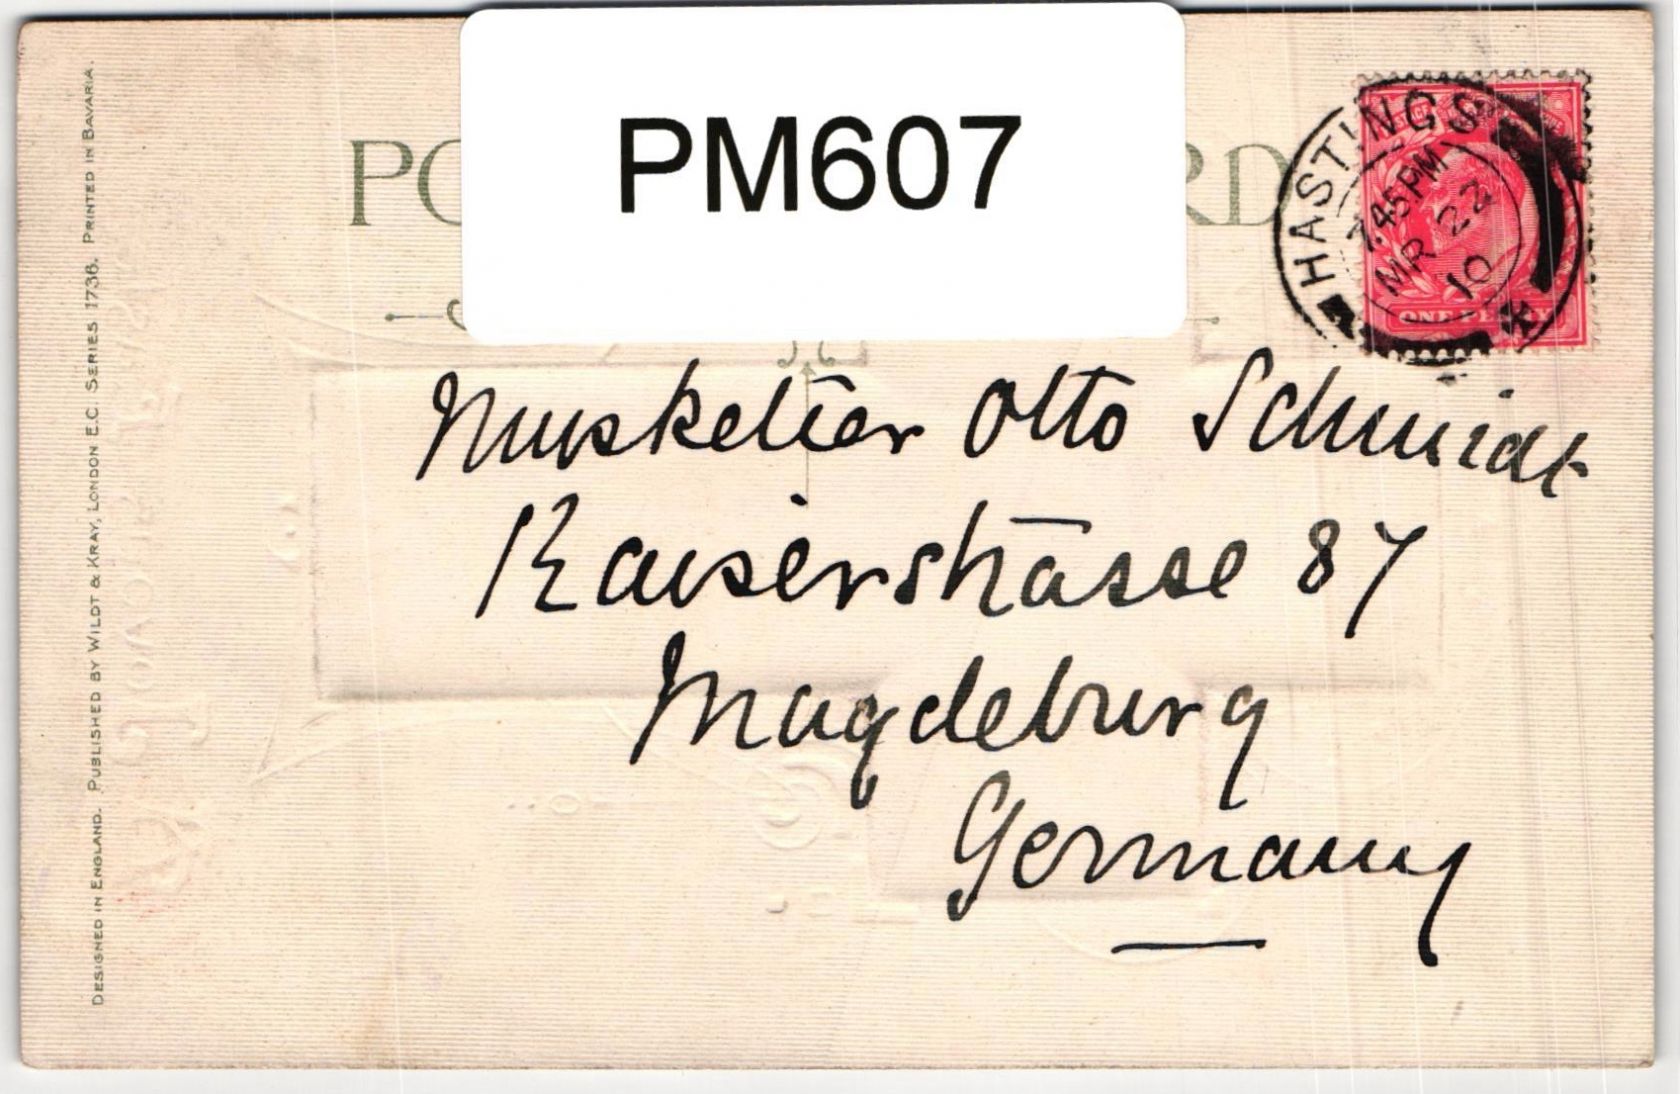 PM607
PO
RD
HASTINGS
7.45PM
MR 22
10
ONE PENNY
Musketier Otto Schmidt
Kaiserstrasse 87
Magdeburg
Germany
DESIGNED IN ENGLAND. PUBLISHED BY WILDT & KRAY, LONDON E.C. SERIES 1736. PRINTED IN BAVARIA.